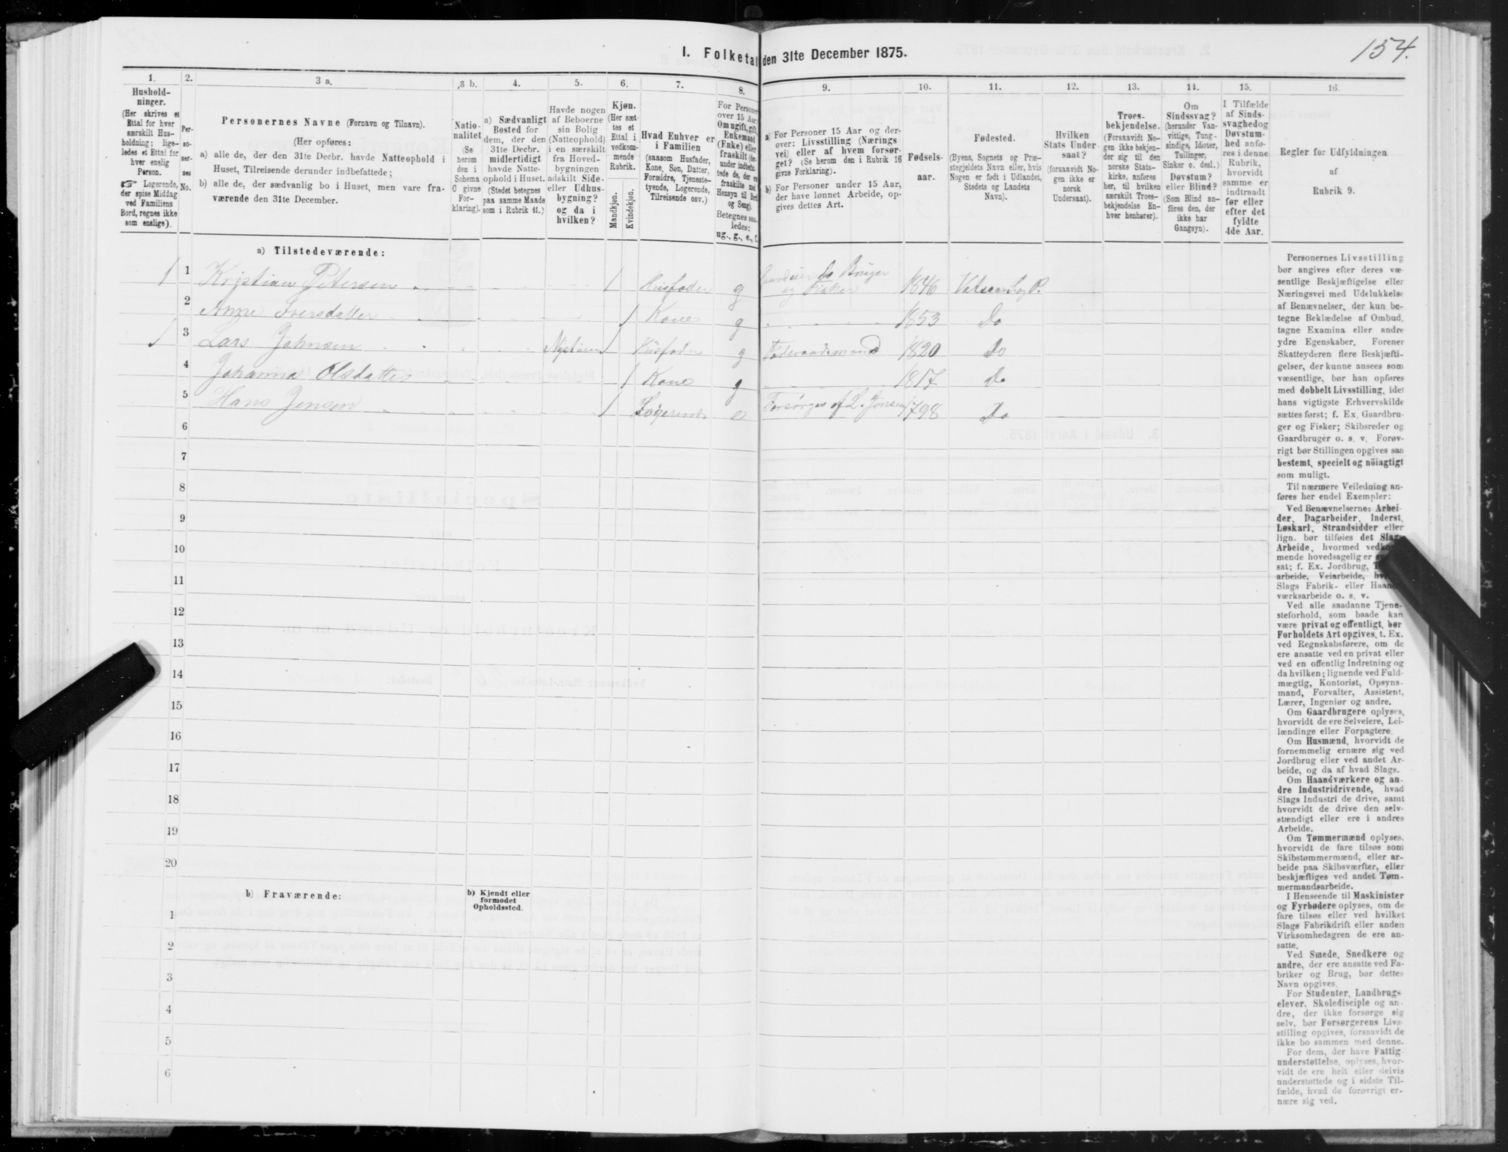 154.
I. Folketal den 31te December 1875.
1. 2. 3 a. 3 b. 4. 5. 6. 7. 8. 9. 10. 11. 12. 13. 14. 15. 16.
Hushold-
ninger.
(Her skrives et
Ettal for hver
særskilt Hus-
holdning; lige-
ledes et Ettal for
hver enslig
Person.
☞ Logerende,
der spise Middag
ved Familiens
Bord, regnes ikke
som enslige).
Per-
so-
ner-
nes
No.
Personernes Navne (Fornavn og Tilnavn).
(Her opføres:
a) alle de, der den 31te Decbr. havde Natteophold i
Huset, Tilreisende derunder indbefattede;
b) alle de, der sædvanlig bo i Huset, men vare fra-
værende den 31te December.
Natio-
nalitet
(Se
herom
den i
Schema
C givne
For-
klaring).
a) Sædvanligt
Bosted for
dem, der den
31te Decbr.
midlertidigt
havde Natte-
ophold i Huset.
(Stedet betegnes
paa samme Maade
som i Rubrik 11.)
Havde nogen
af Beboerne
sin Bolig
(Natteophold)
i en særskilt
fra Hoved-
Bygningen
adskilt Side-
eller Udhus-
bygning?
og da i
hvilken?
Kjøn.
(Her sæt-
tes et
Ettal i
vedkom-
mende
Rubrik.
Mandkjøn.
Kvindekjøn.
Hvad Enhver er
i Familien
(saasom Husfader,
Kone, Søn, Datter,
Forældre, Tjeneste-
tyende, Logerende,
Tilreisende osv.)
For Personer
over 15 Aar:
Om ugift, gift,
Enkemand
(Enke) eller
fraskilt
Betegnes saa-
ledes:
ug., g., e., f.
a) For Personer 15 Aar og der-
over: Livsstilling (Nærings
vei) eller af hvem forsør-
get? (Se herom den i Rubrik 16
givne Forklaring).
b) For Personer under 15 Aar,
der have lønnet Arbeide, op-
gives dettes Art.
Fødsels-
aar.
Fødested.
(Byens, Sognets og Præ-
stegjeldets Navn eller, hvis
Nogen er født i Udlandet,
Stedets og Landets
Navn).
Hvilken
Stats Under-
saat?
(forsaavidt No-
gen ikke er
norsk
Undersaat).
Troes-
bekjendelse.
(Forsaavidt No-
gen ikke bekjen-
der sig til den
norske Stats-
kirke, anføres
her, til hvilken
særskilt Troes-
bekjendelse En-
hver henhører).
Om
Sindssvag?
(herunder Van-
vittige, Tung-
sindige, Idioter,
Tullinger,
Sinker o. desl.)
Døvstum?
eller Blind?
(Som Blind an-
føres den, der
ikke har
Gangsyn).
I Tilfælde
af Sinds-
svaghed og
Døvstum-
hed anfø-
res i denne
Rubrik,
hvorvidt
samme er
indtraadt
før eller
efter det
fyldte
4de Aar.
Regler for Udfyldningen
af
Rubrik 9.
a) Tilstedeværende:
1 1 Kristian Petersen 1 Husfader g Gaardeier Do Bruger og Fisker 1846
2 Anne Iversdatter 1 Kone g 1853 Do
1 3 Lars Johnsen 1 Husfader g Føderaadsmand 1820 Do
4 Johanna Olsdatter 1 Kone g 1817 Do
5 Hans Jensen 1 Logerende e Forsørges af L. Jonsen 1798 Do
6
7
8
9
10
11
12
13
14
15
16
17
18
19
20
b) Fraværende:
b) Kjendt eller
formodet
Opholdssted.
1
2
3
4
5
6
Personernes Livsstilling
bør angives efter deres væ-
sentlige Beskjæftigelse eller
Næringsvei med Udelukkelse
af Benævnelser, der kun be-
tegne Beklædelse af Ombud,
tagne Examina eller andre
ydre Egenskaber. Forener
Skatteyderen flere Beskjæfti-
gelser, der kunne ansees som
væsentlige, bør han opføres
med dobbelt Livsstilling, idet
hans vigtigste Erhvervskilde
sættes først; f. Ex. Gaardbru-
ger og Fisker; Skibsreder og
Gaardbruger o. s. v. Forøv-
rigt bør Stillingen opgives saa
bestemt, specielt og nøiagtigt
som muligt.
Til nærmere Veiledning an-
føres her endel Exempler:
Ved Benævnelserne: Arbei-
der, Dagarbeider, Inderst,
Løskarl, Strandsidder eller
lign. bør tilføies det Slags
Arbeide, hvormed ved-
mende hovedsagelig er
sat; f. Ex. Jordbrug,
arbeide, Veiarbeide,
Slags Fabrik- eller Haand-
værksarbeide o. s. v.
Ved alle saadanne Tjene-
steforhold, som baade kan
være privat og offentligt, bør
Forholdets Art opgives, t. Ex.
ved Regnskabsførere, om de
ere ansatte ved en privat eller
ved en offentlig Indretning og
da hvilken; lignende ved Fuld-
mægtig, Kontorist, Opsyns-
mand, Forvalter, Assistent,
Lærer, Ingeniør og andre.
Om Gaardbrugere oplyses,
hvorvidt de ere Selveiere, Lei-
lændinge eller Forpagtere.
Om Husmænd, hvorvidt de
fornemmelig ernære sig ved
Jordbrug eller ved andet Ar-
beide, og da af hvad Slags.
Om Haandværkere og an-
dre Industridrivende, hvad
Slags Industri de drive, samt
hvorvidt de drive den selv-
stændigt eller ere i andres
Arbeide.
Om Tømmermænd oplyses,
hvorvidt de fare tilsøs som
Skibstømmermænd, eller ar-
beide paa Skibsværfter, eller
beskjæftiges ved andet Tøm-
mermandsarbeide.
I Henseende til Maskinister
og Fyrbødere oplyses, om de
fare tilsøs eller ved hvilket
Slags Fabrikdrift eller anden
Virksomhedsgren de ere an-
satte.
Ved Smede, Snedkere og
andre, der ere ansatte ved Fa-
briker og Brug, bør dettes
Navn opgives.
For Studenter, Landbrugs-
elever, Skoledisciple og an-
dre, der ikke forsørge sig
selv, bør Forsørgerens Livs-
stilling opgives, forsaavidt de
ikke bo sammen med denne.
For dem, der have Fattig-
understøttelse, oplyses, hvor-
vidt de ere helt eller delvis
understøttede og i sidste Til-
fælde, hvad de forøvrigt er-
nære sig ved.